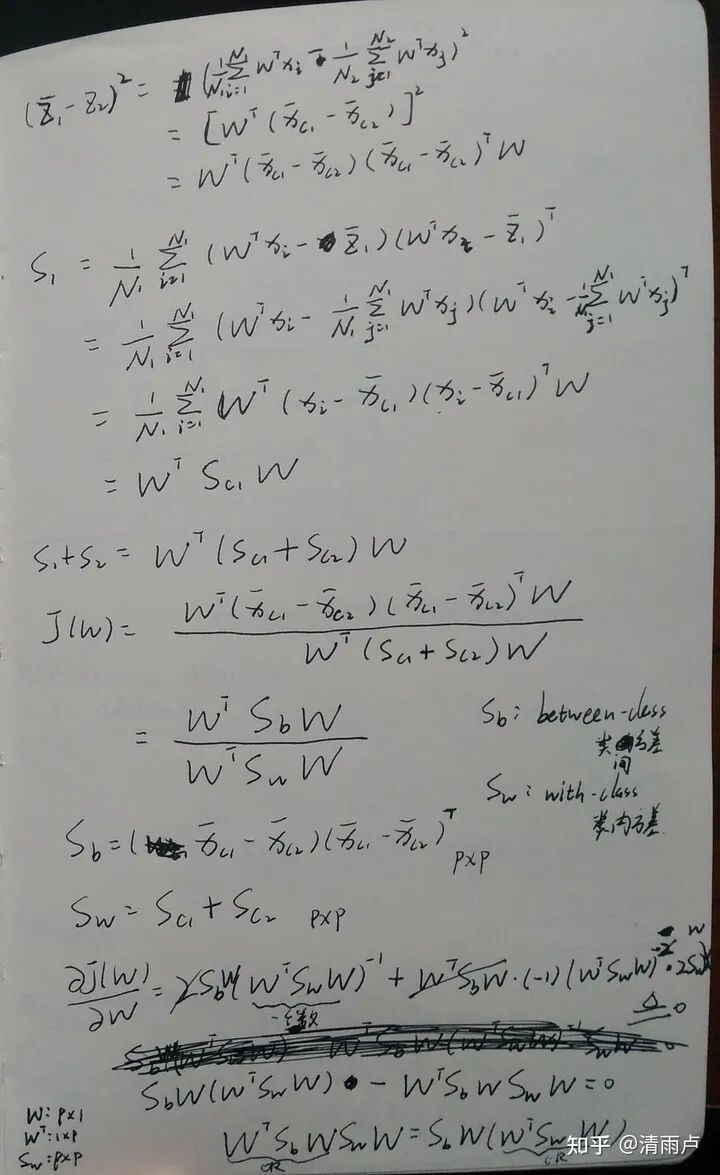 (z̄₁ - z₂)² = (1/N₁ Σᵢ₌₁^N₁ Wᵀxᵢ - 1/N₂ Σⱼ₌₁^N₂ Wᵀxⱼ)²
= [Wᵀ(x̄c₁ - x̄c₂)]²
= Wᵀ(x̄c₁ - x̄c₂)(x̄c₁ - x̄c₂)ᵀW
S₁ = 1/N₁ Σᵢ₌₁^N₁ (Wᵀxᵢ - z̄₁)(Wᵀxᵢ - z̄₁)ᵀ
= 1/N₁ Σᵢ₌₁^N₁ (Wᵀxᵢ - 1/N₁ Σⱼ₌₁^N₁ Wᵀxⱼ)(Wᵀxᵢ - 1/N₁ Σⱼ₌₁^N₁ Wᵀxⱼ)ᵀ
= 1/N₁ Σᵢ₌₁^N₁ Wᵀ(xᵢ - x̄c₁)(xᵢ - x̄c₁)ᵀW
= Wᵀ Sc₁ W
S₁+S₂ = Wᵀ(Sc₁ + Sc₂)W
J(W) = Wᵀ(x̄c₁ - x̄c₂)(x̄c₁ - x̄c₂)ᵀW / Wᵀ(Sc₁ + Sc₂)W
= WᵀSbW / WᵀSwW
Sb: between-class
类间方差
Sw: with-class
类内方差
Sb = (x̄c₁ - x̄c₂)(x̄c₁ - x̄c₂)ᵀ p×p
Sw = Sc₁ + Sc₂ p×p
∂J(W)/∂W = 2SbW(WᵀSwW)⁻¹ + WᵀSbW·(-1)(WᵀSwW)⁻²·2SwW ≜ 0
SbW(WᵀSwW) - WᵀSbWSwW = 0
WᵀSbWSwW = SbW(WᵀSwW)
∈R ∈R
W: p×1
Wᵀ: 1×p
Sw: p×p
知乎 @清雨卢